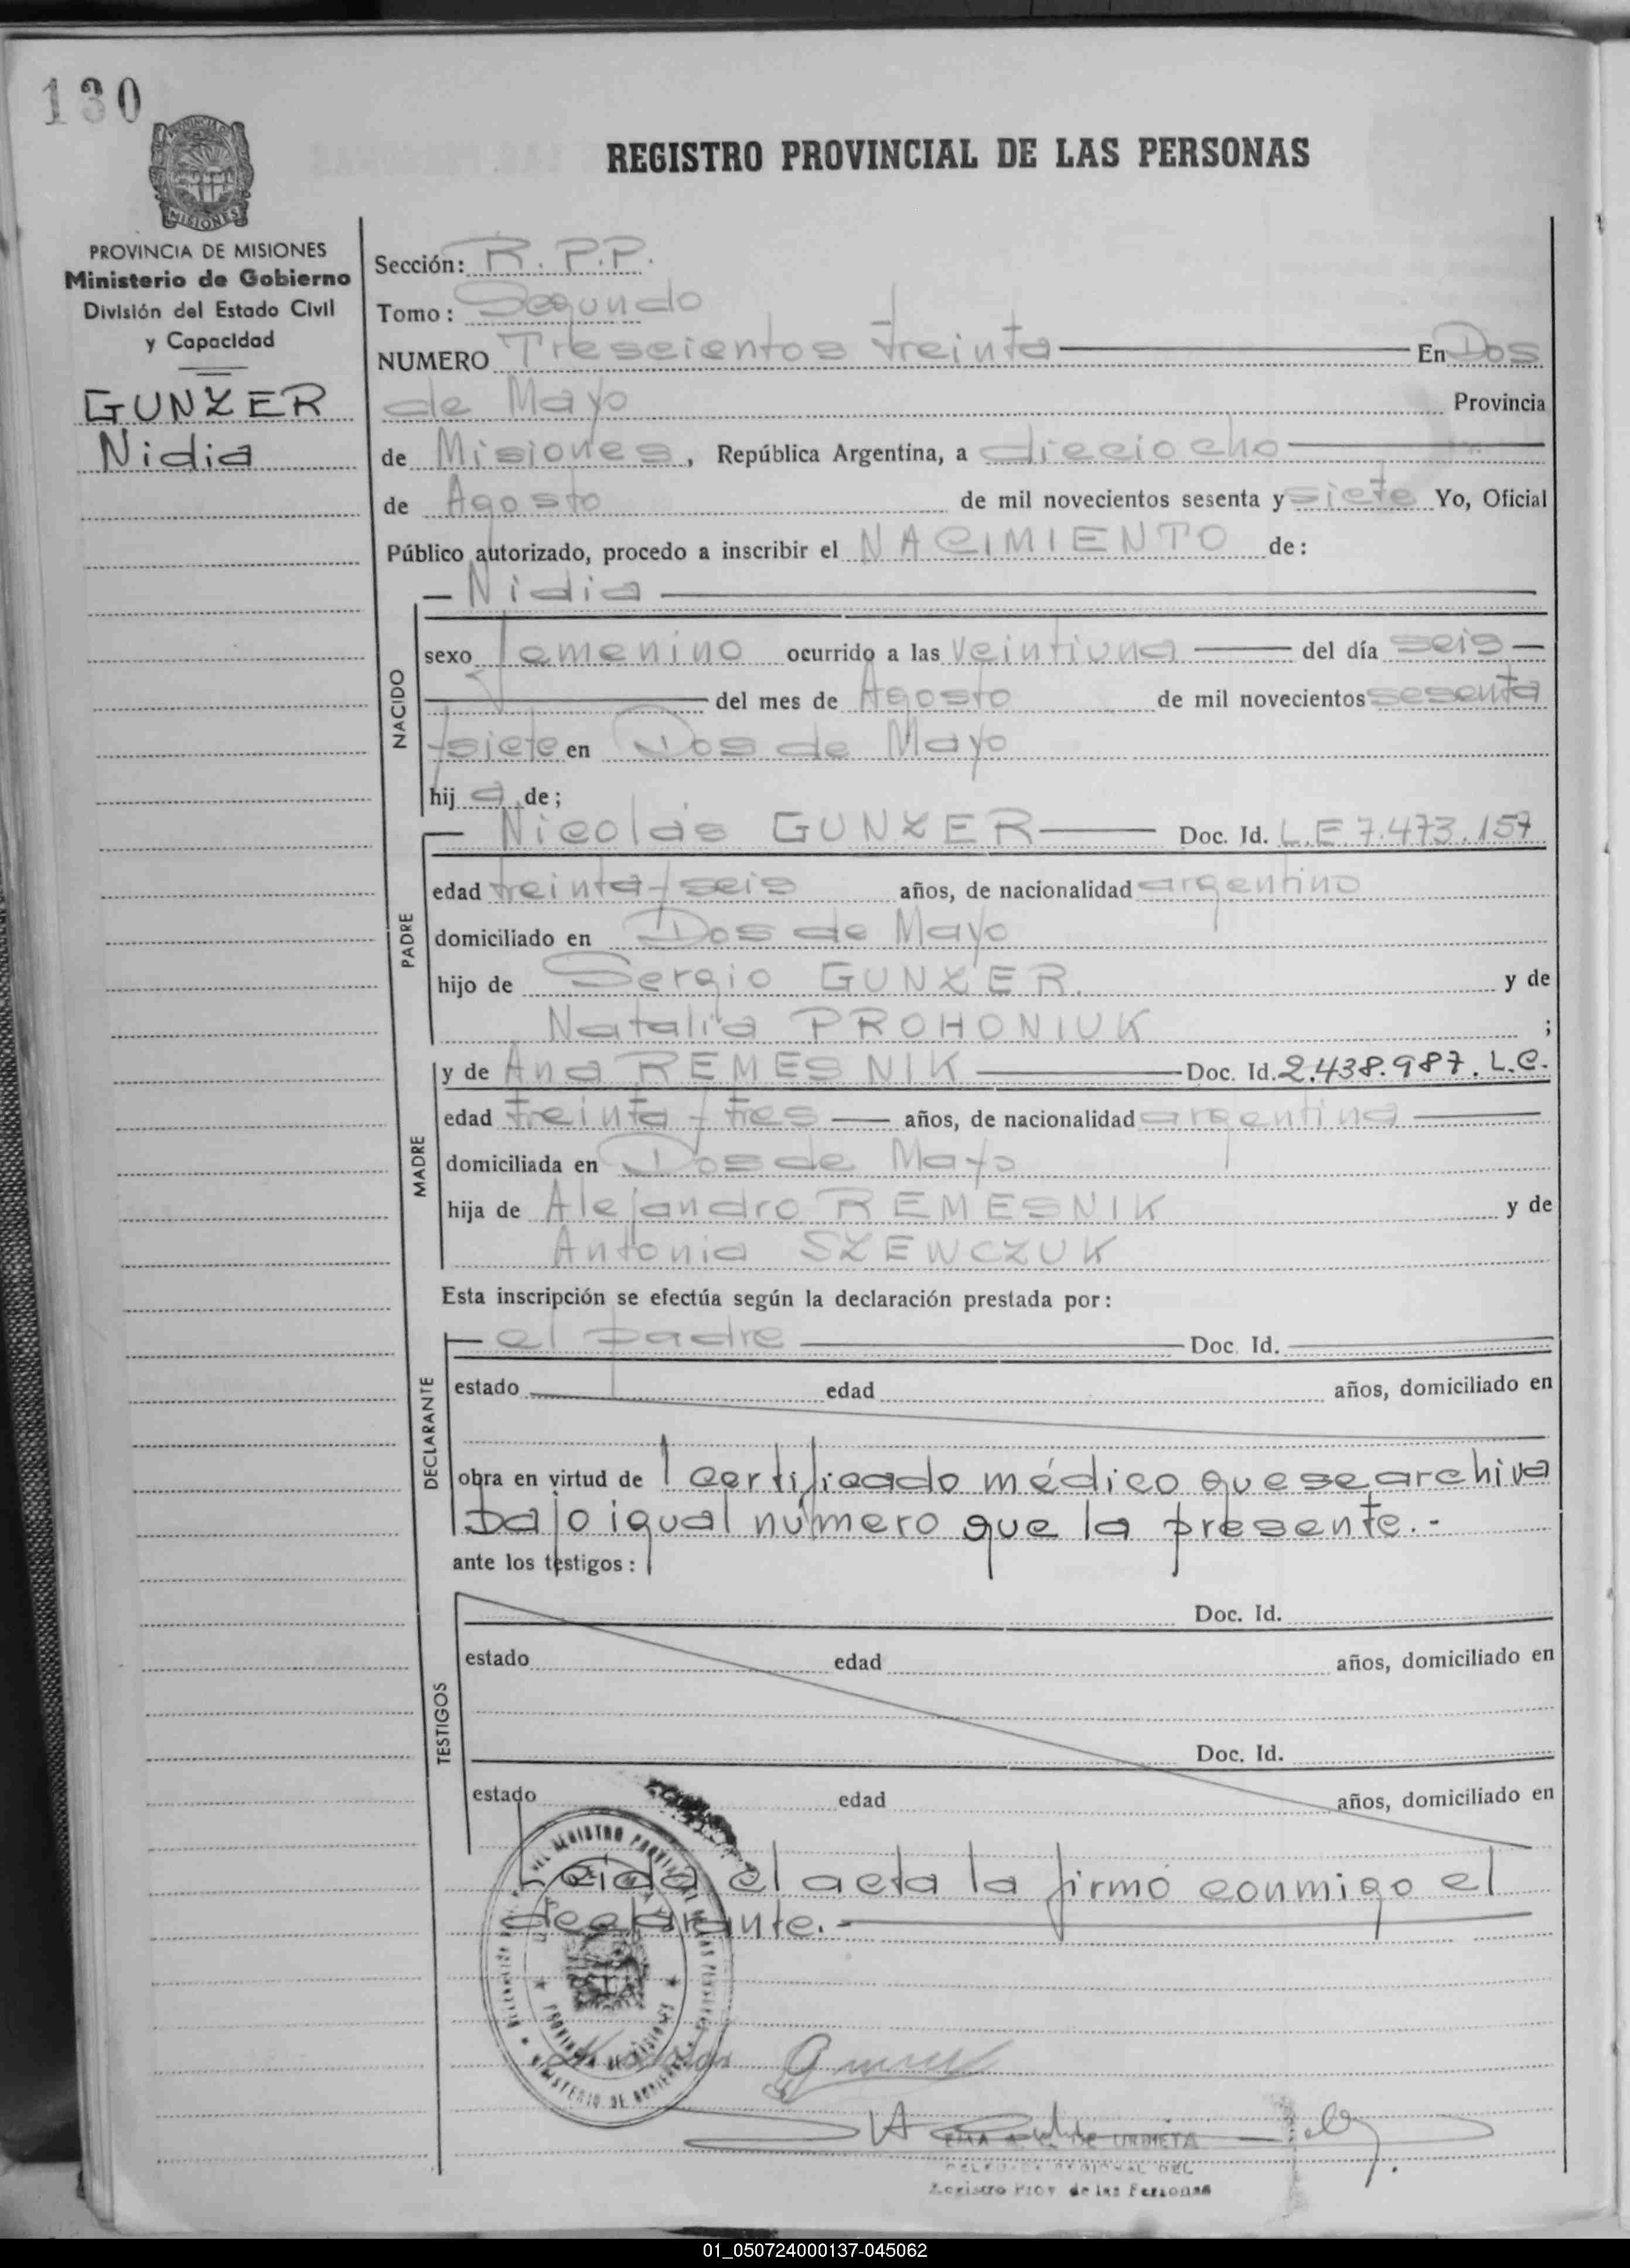 130
PROVINCIA DE
MISIONES
REGISTRO PROVINCIAL DE LAS PERSONAS
PROVINCIA DE MISIONES
Ministerio de Gobierno
División del Estado Civil
y Capacidad
GUNZER
Nidia
Sección: R. P.P.
Tomo: Segundo
NUMERO Trescientos treinta En Dos
de Mayo Provincia
de Misiones, República Argentina, a dieciocho
de Agosto de mil novecientos sesenta y siete Yo, Oficial
Público autorizado, procedo a inscribir el NACIMIENTO de:
NACIDO
— Nidia
sexo femenino ocurrido a las veintiuna del día seis
del mes de Agosto de mil novecientos sesenta
y siete en Dos de Mayo
hij a de;
PADRE
— Nicolás GUNZER Doc. Id. L.E. 7.473.157
edad treinta y seis años, de nacionalidad argentino
domiciliado en Dos de Mayo
hijo de Sergio GUNZER. y de
Natalia PROHONIUK ;
MADRE
y de Ana REMESNIK Doc. Id. 2.438.987. L.C.
edad treinta y tres años, de nacionalidad argentina
domiciliada en Dos de Mayo
hija de Alejandro REMESNIK y de
Antonia SZEWCZUK
Esta inscripción se efectúa según la declaración prestada por:
DECLARANTE
— el padre Doc. Id.
estado edad años, domiciliado en
obra en virtud de 1 certificado médico que se archiva
bajo igual número que la presente.-
ante los testigos:
TESTIGOS
Doc. Id.
estado edad años, domiciliado en
Doc. Id.
estado edad años, domiciliado en
Leida el acta la firmó conmigo el
declarante.-
PROVINCIA DE MISIONES
MINISTERIO DE GOBIERNO
DE URDIETA
REGIONAL DEL
Registro Prov de las Personas
01_050724000137-045062